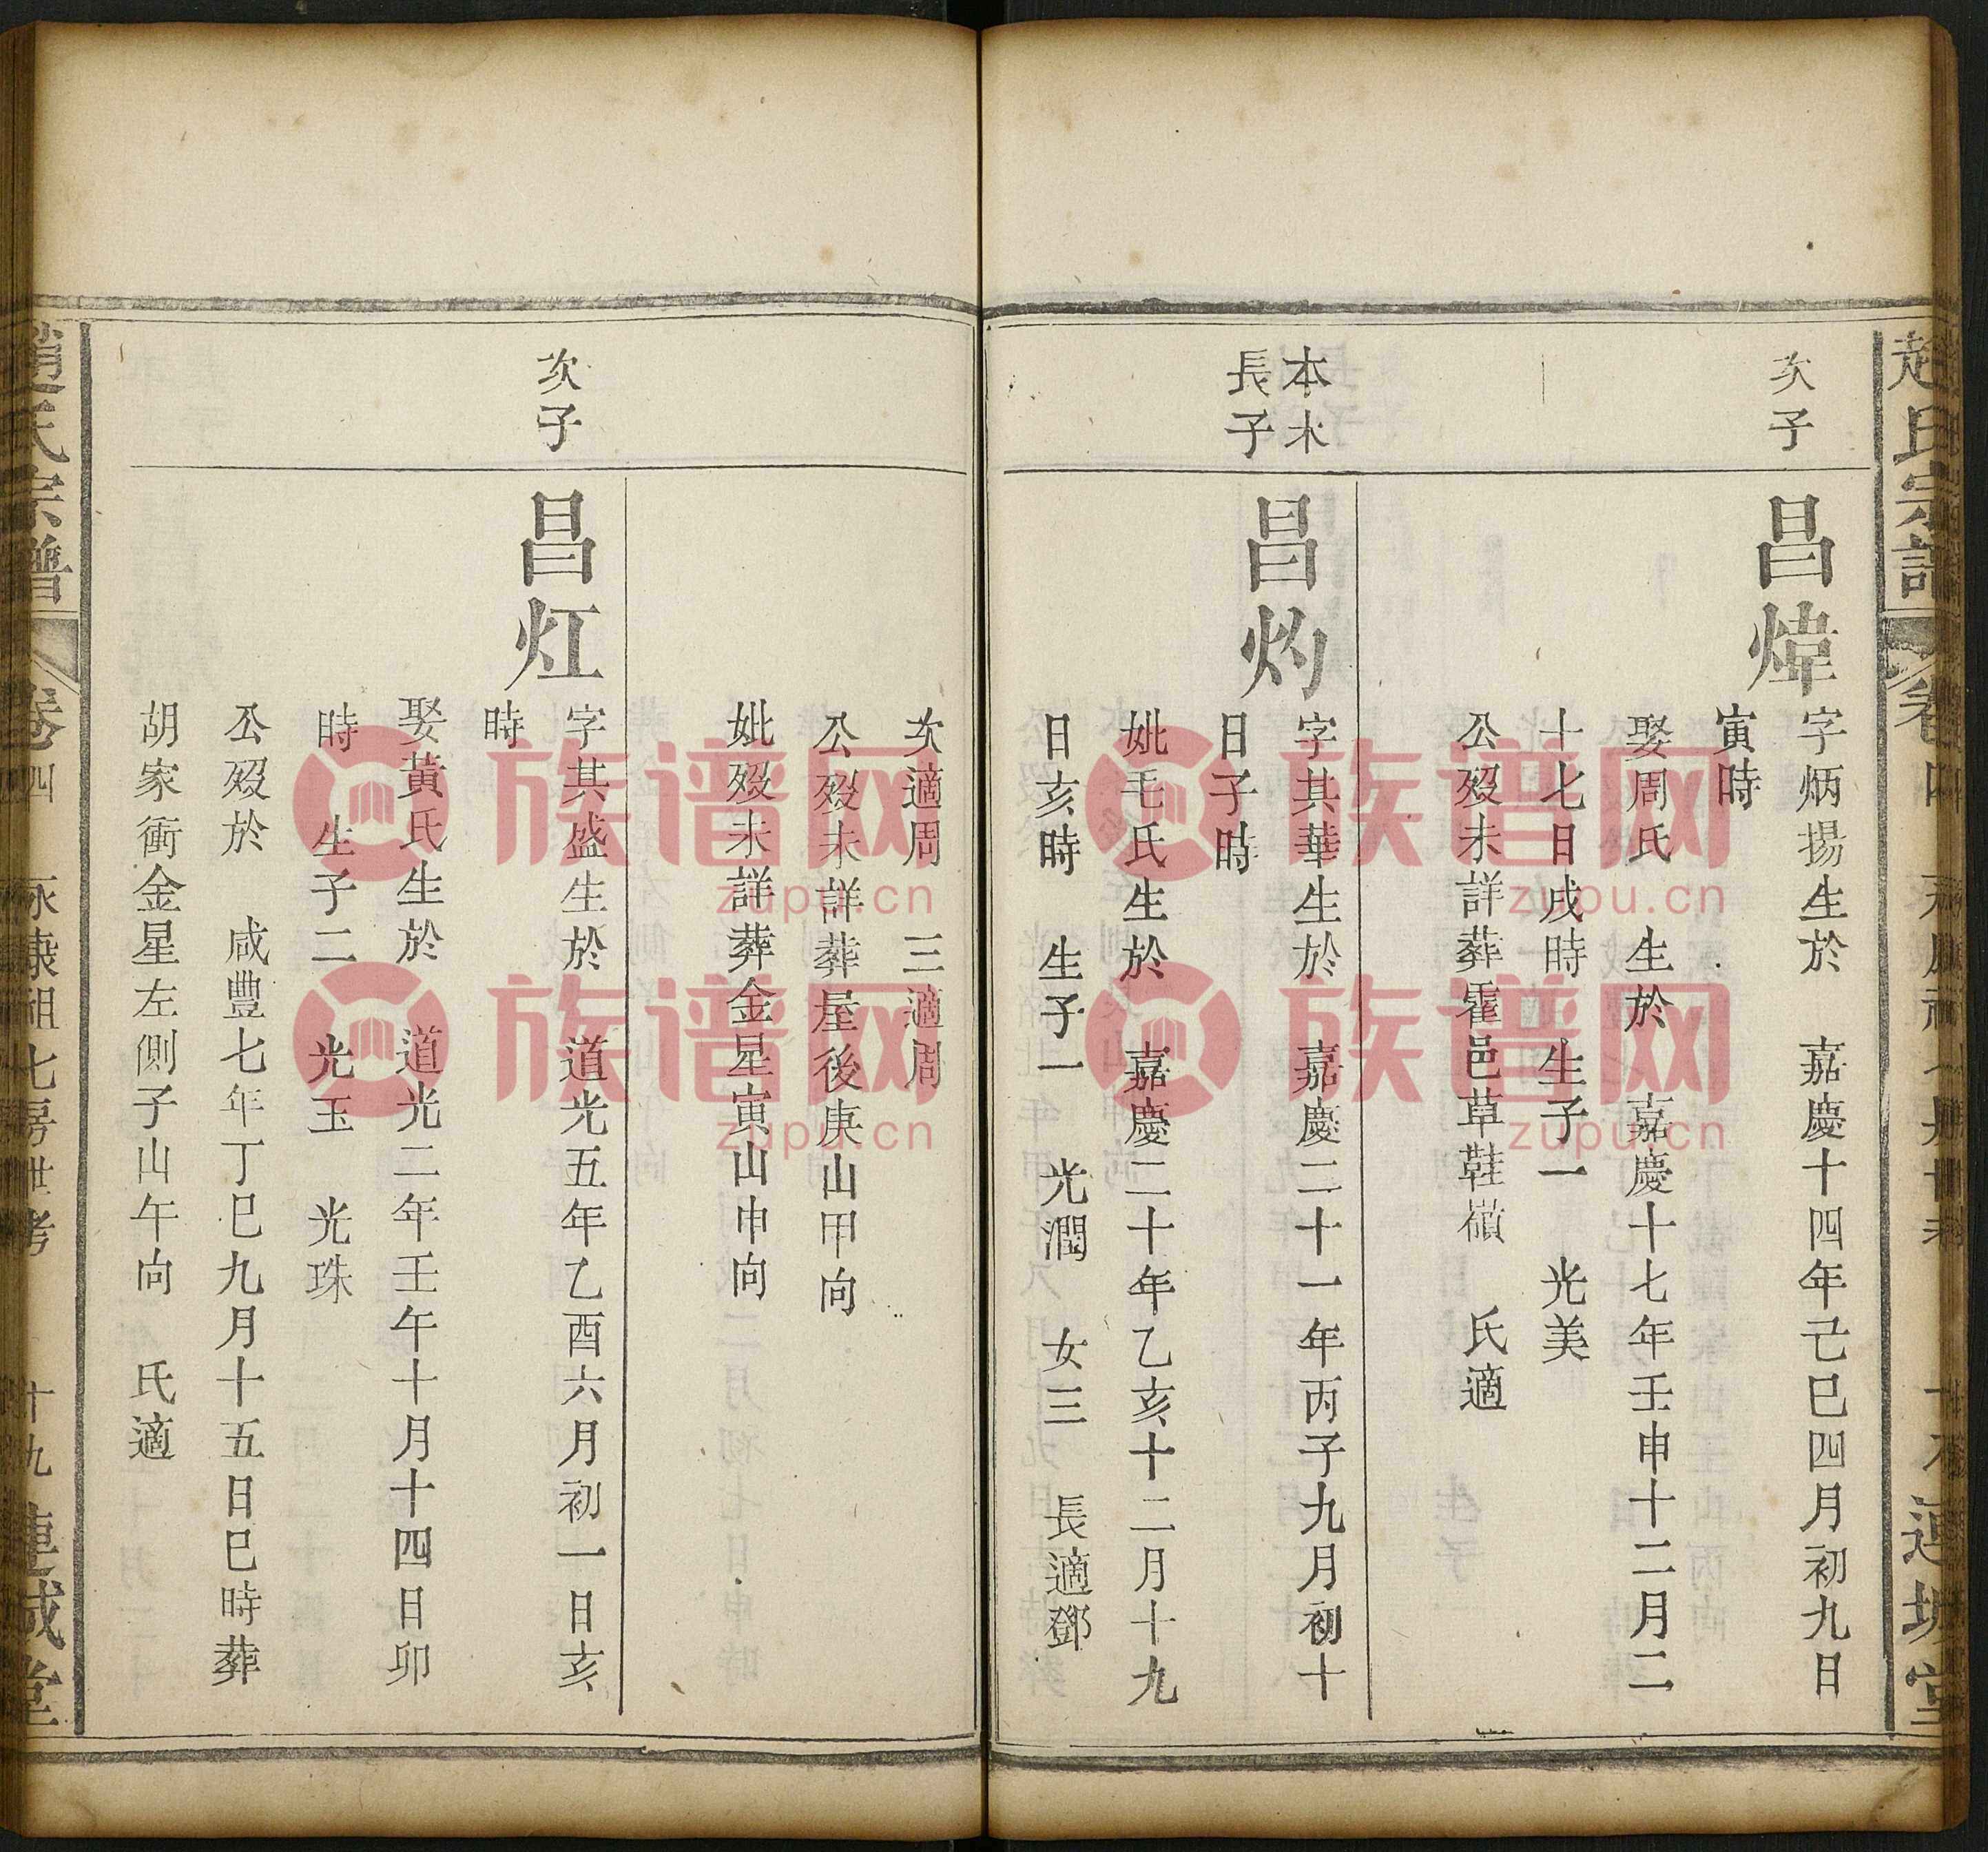 次子
昌煒
字炳揚生於 嘉慶十四年己巳四月初九日
寅時
娶周氏 生於 嘉慶十七年壬申十二月二
十七日戌時 生子一 光美
公歿未詳葬霍邑草鞋嶺 氏適
本木
長子
昌灼
字其華生於 嘉慶二十一年丙子九月初十
日子時
妣毛氏生於 嘉慶二十年乙亥十二月十九
日亥時 生子一 光潤 女三 長適鄧
次適周 三適周
公歿未詳葬屋後庚山甲向
妣歿未詳葬金星寅山申向
次子
昌灴
字其盛生於 道光五年乙酉六月初一日亥
時
娶黃氏生於 道光二年壬午十月十四日卯
時 生子二 光玉 光珠
公歿於 咸豐七年丁巳九月十五日巳時葬
胡家衝金星左側子山午向 氏適
趙氏宗譜
卷四
永康祖七房世考
十九
連城堂
族谱网
zupu.cn
族谱网
zupu.cn
族谱网
zupu.cn
族谱网
zupu.cn